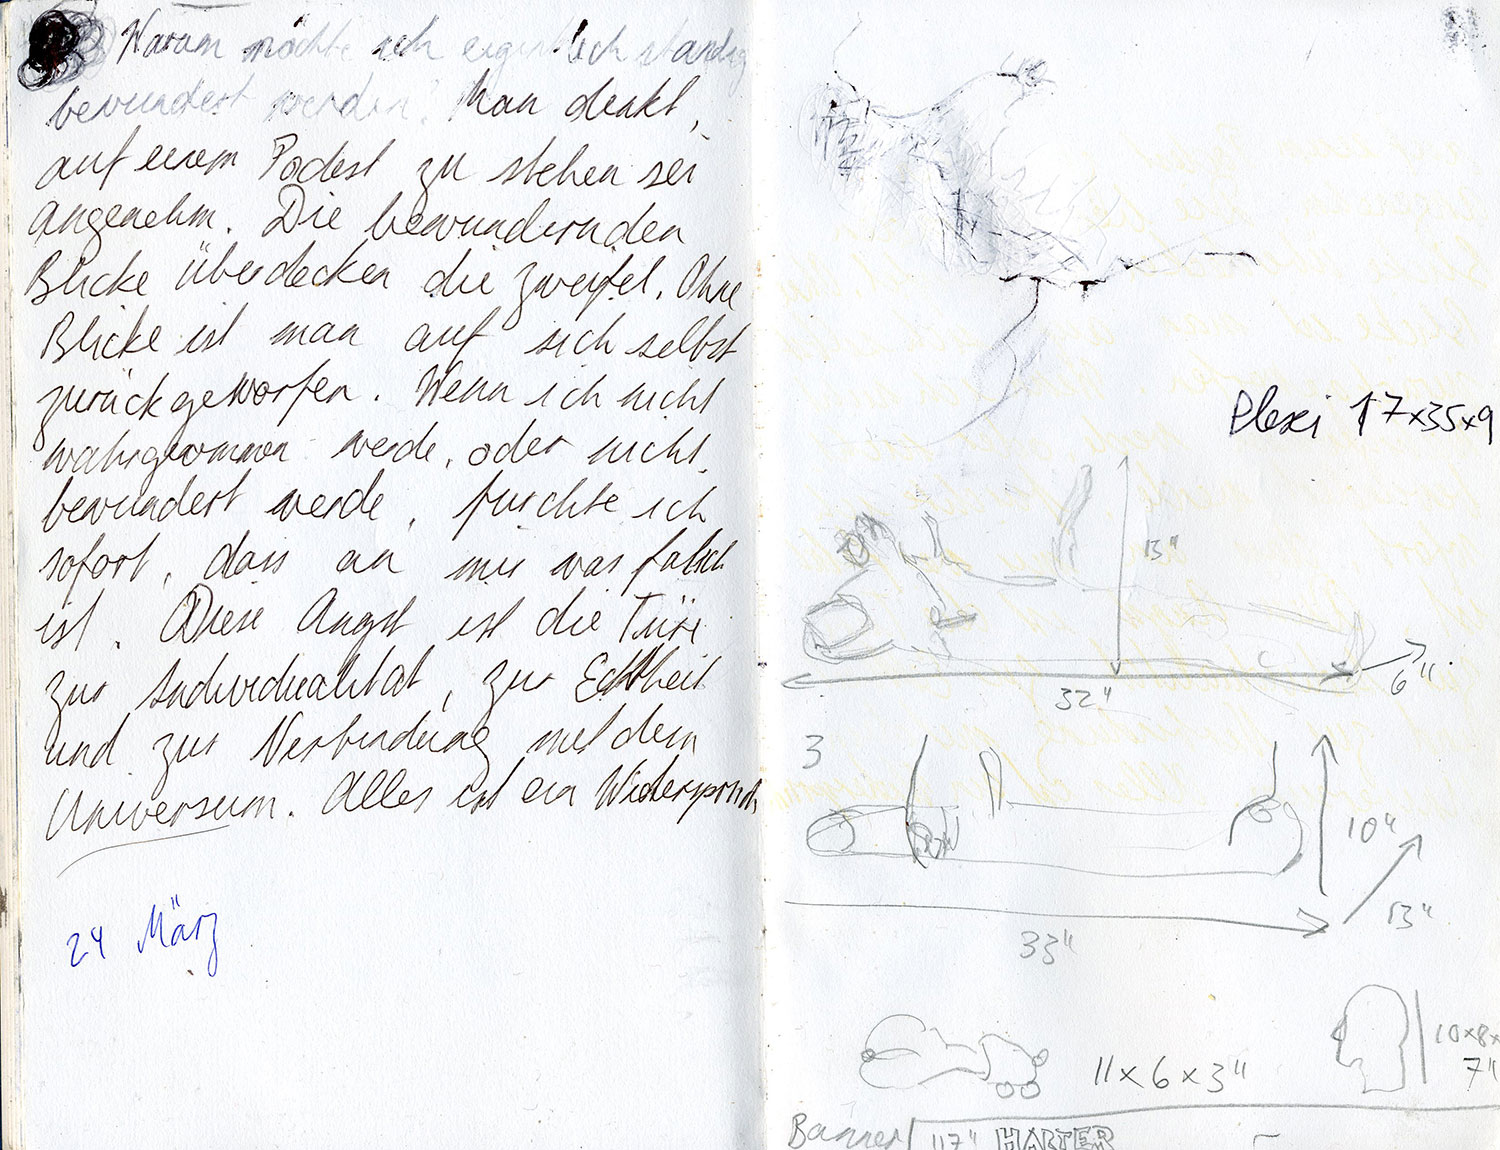 Warum möchte ich eigentlich ständig
bewundert werden? Man denkt,
auf einem Podest zu stehen sei
angenehm. Die bewundernden
Blicke überdecken die Zweifel. Ohne
Blicke ist man auf sich selbst
zurückgeworfen. Wenn ich nicht
wahrgenommen werde, oder nicht
bewundert werde, fürchte ich
sofort, dass an mir was falsch
ist. Diese Angst ist die Türe
zur Individualität, zur Echtheit
und zur Verbindung mit dem
Universum. Alles ist ein Widerspruch
24 März
Plexi 17x35x9
13"
6"
32"
3
10"
13"
33"
11x6x3"
10x8x
7"
Banner 117" HALTER